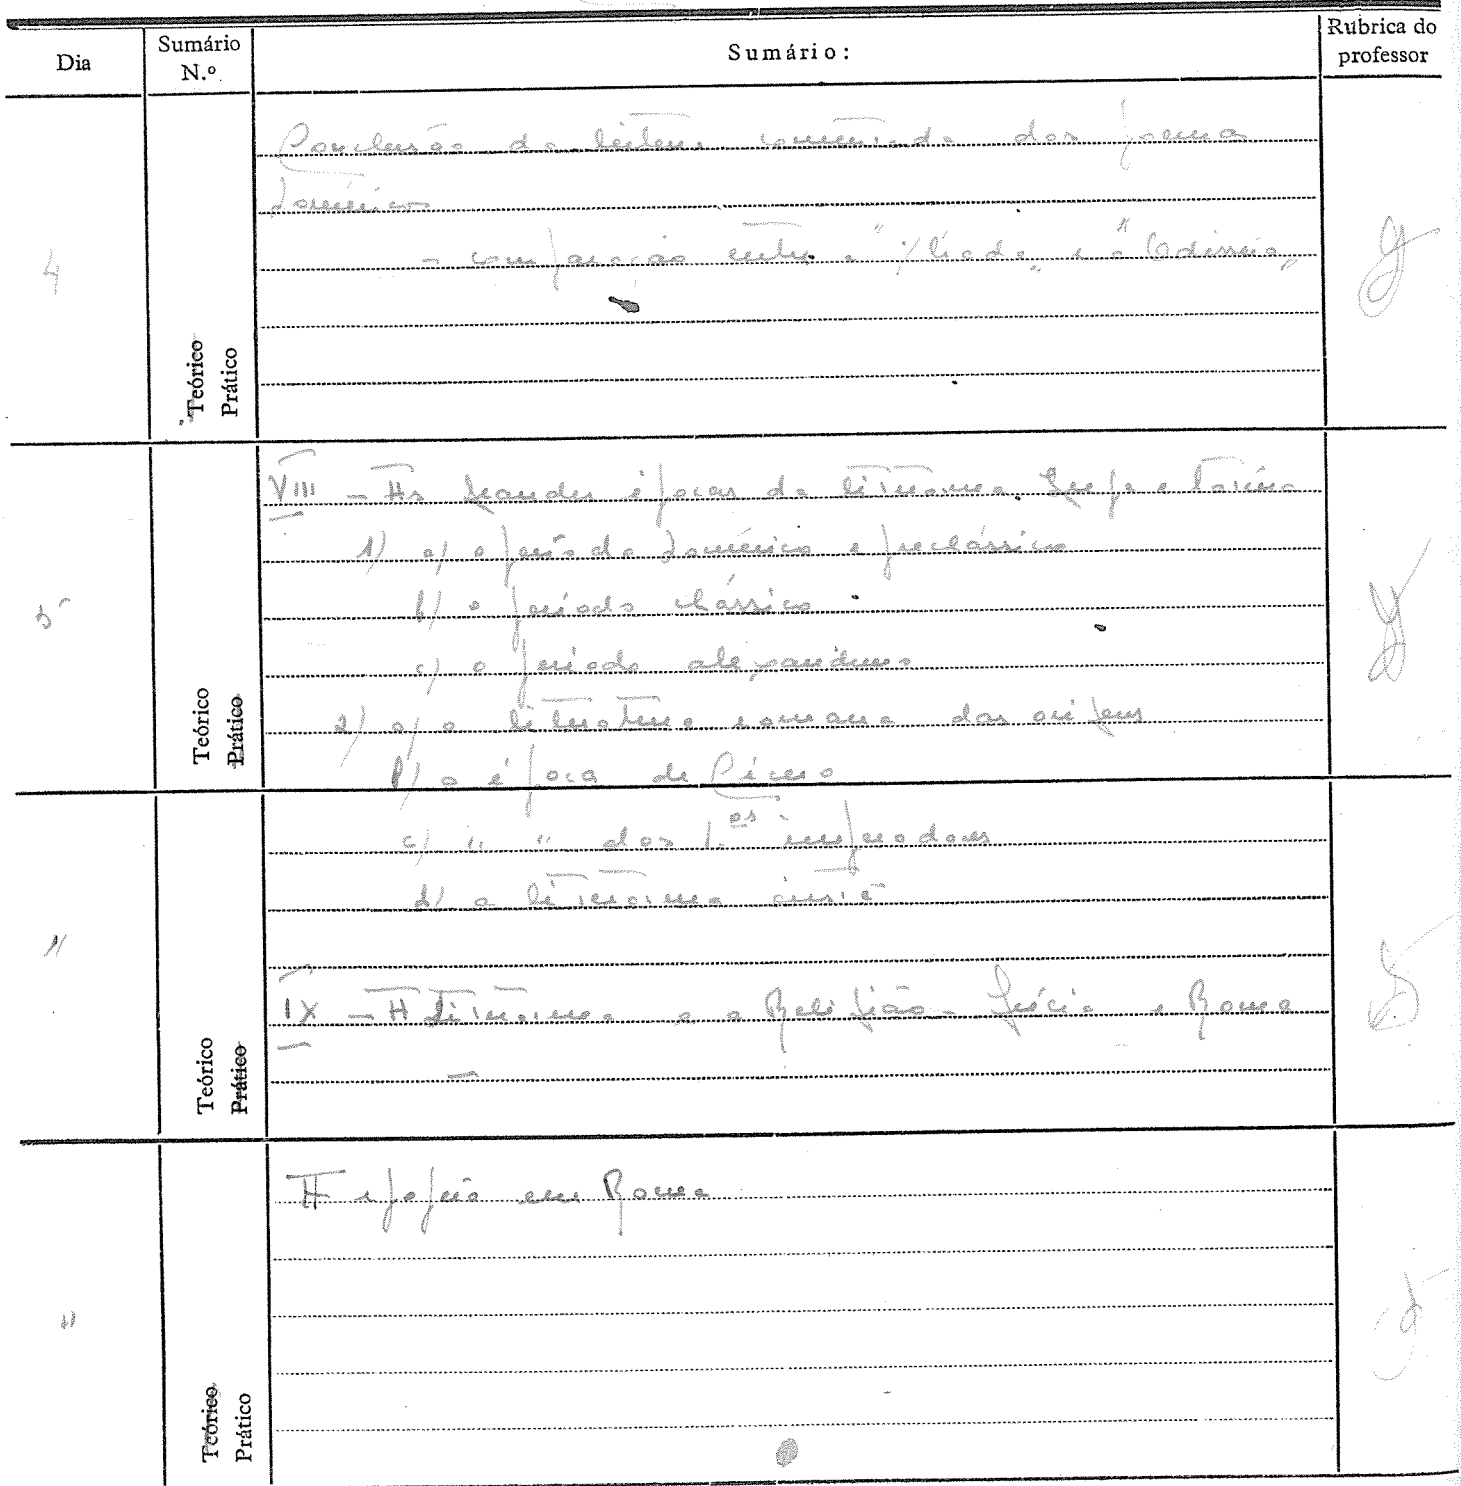 Dia
Sumário N.º
Sumário:
Rubrica do professor
4
Teórico
Prático
Conclusão da leitura comentada dos poemas
homéricos
- comparação entre a "Ilíada" e a "Odisseia"
5
Teórico
Prático
VIII - As grandes épocas da literatura Grega e Latina
1) a) o período homérico e preclássico
b) o período clássico
c) o período alexandrino
2) a) a literatura romana das origens
b) a época de Cícero
"
Teórico
Prático
c) " " dos 1.os imperadores
d) a literatura cristã
IX - A Literatura e a Religião - Grécia e Roma
"
Teórico
Prático
A epopeia em Roma